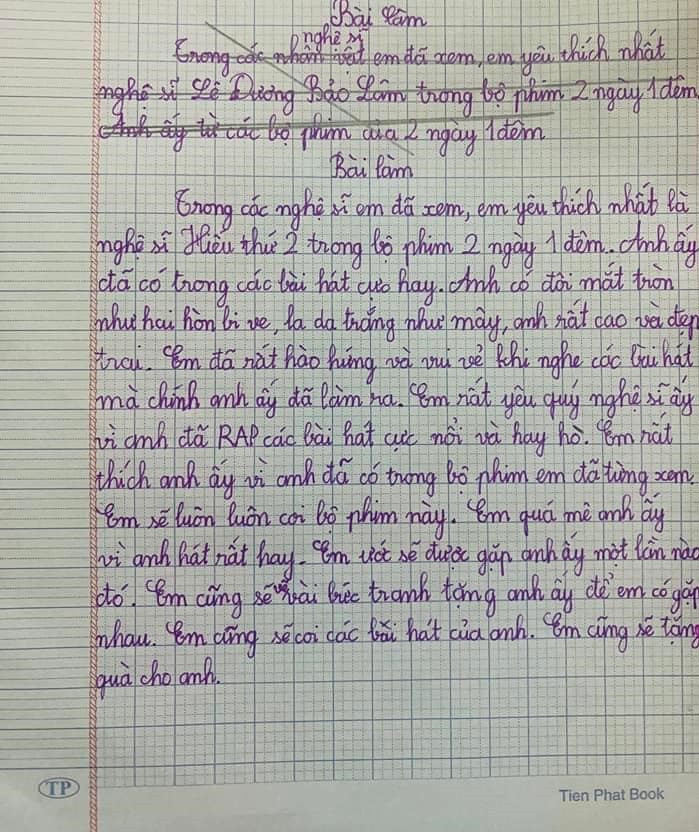 Bài làm
nghệ sĩ
Trong các nhân vật em đã xem, em yêu thích nhất
nghệ sĩ Lê Dương Bảo Lâm trong bộ phim 2 ngày 1 đêm.
Anh ấy từ các bộ phim của 2 ngày 1 đêm
Bài làm
Trong các nghệ sĩ em đã xem, em yêu thích nhất là
nghệ sĩ Hiếu thứ 2 trong bộ phim 2 ngày 1 đêm. Anh ấy
đã có trong các bài hát cực hay. Anh có đôi mắt tròn
như hai hòn bi ve, la da trắng như mây, anh rất cao và đẹp
trai. Em đã rất hào hứng và vui vẻ khi nghe các bài hát
mà chính anh ấy đã làm ra. Em rất yêu quý nghệ sĩ ấy
vì anh đã RAP các bài hat cực nổi và hay hò. Em rất
thích anh ấy vì anh đã có trong bộ phim em đã từng xem.
Em sẽ luôn luôn coi bộ phim này. Em quá mê anh ấy
vì anh hát rất hay. Em ước sẽ được gặp anh ấy một lần nào
đó. Em cũng sẽ vẽ vài bức tranh tặng anh ấy để em có gặp
nhau. Em cũng sẽ coi các bài hát của anh. Em cũng sẽ tặng
quà cho anh.
TP
Tien Phat Book